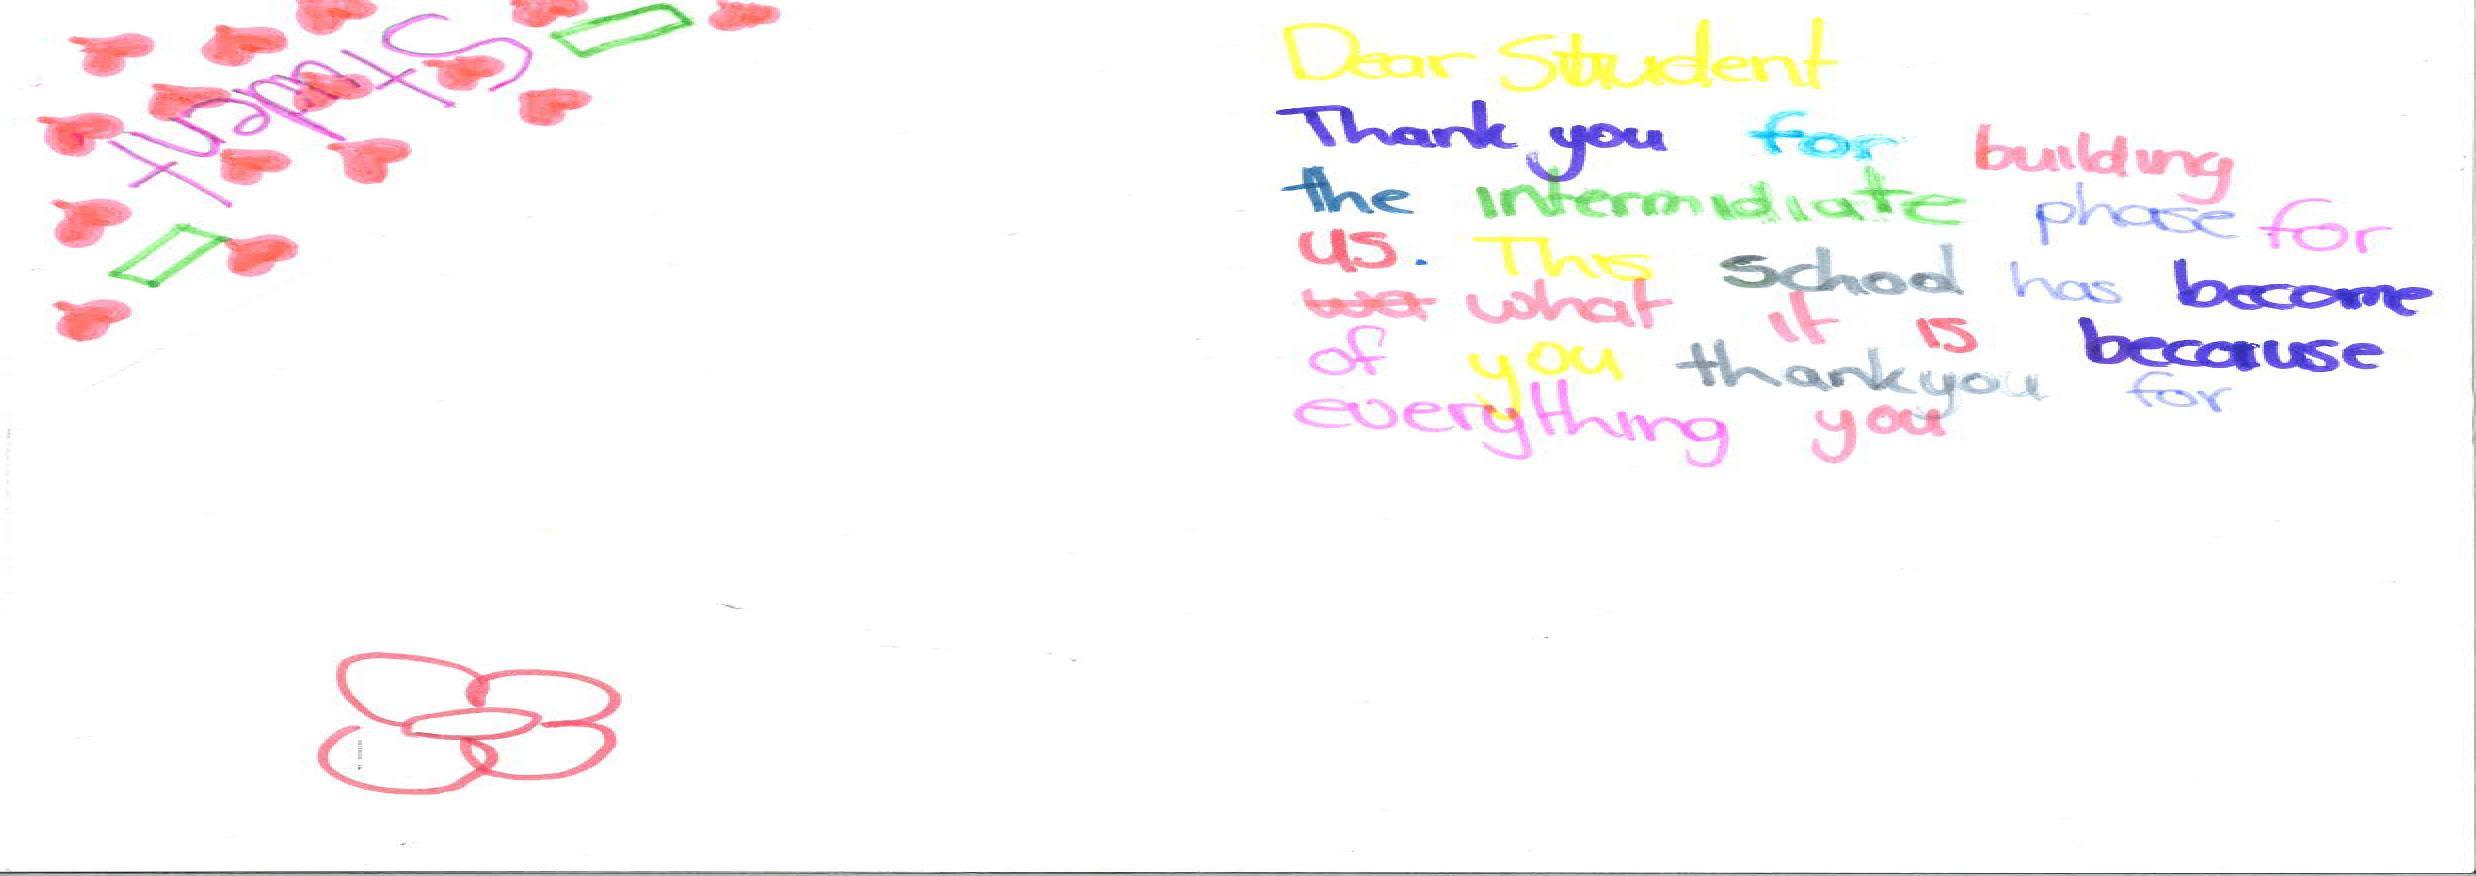 Student
Dear Student
Thank you for building
the intermidiate phase for
us. This school has become
what it is because
of you thankyou for
everything you